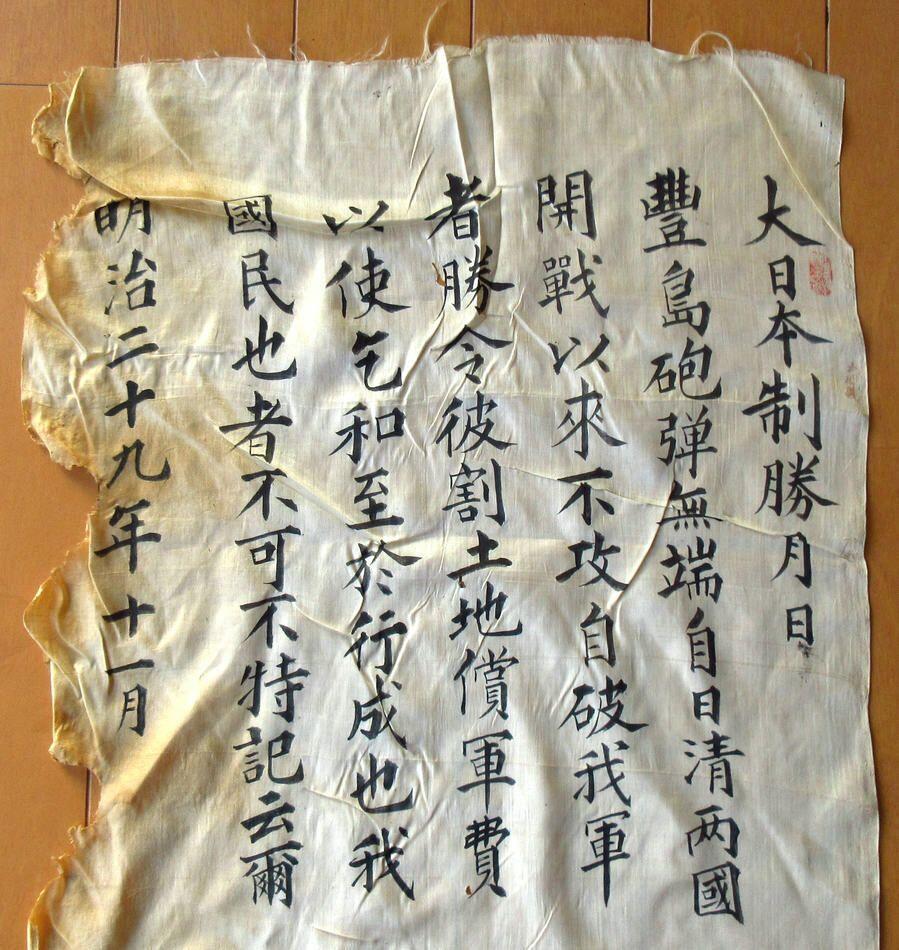 大日本制勝月日
豐島砲弾無端自日清两國
開戰以來不攻自破我軍
者勝令彼割土地償軍費
以使乞和至於行成也我
國民也者不可不特記云爾
明治二十九年十一月